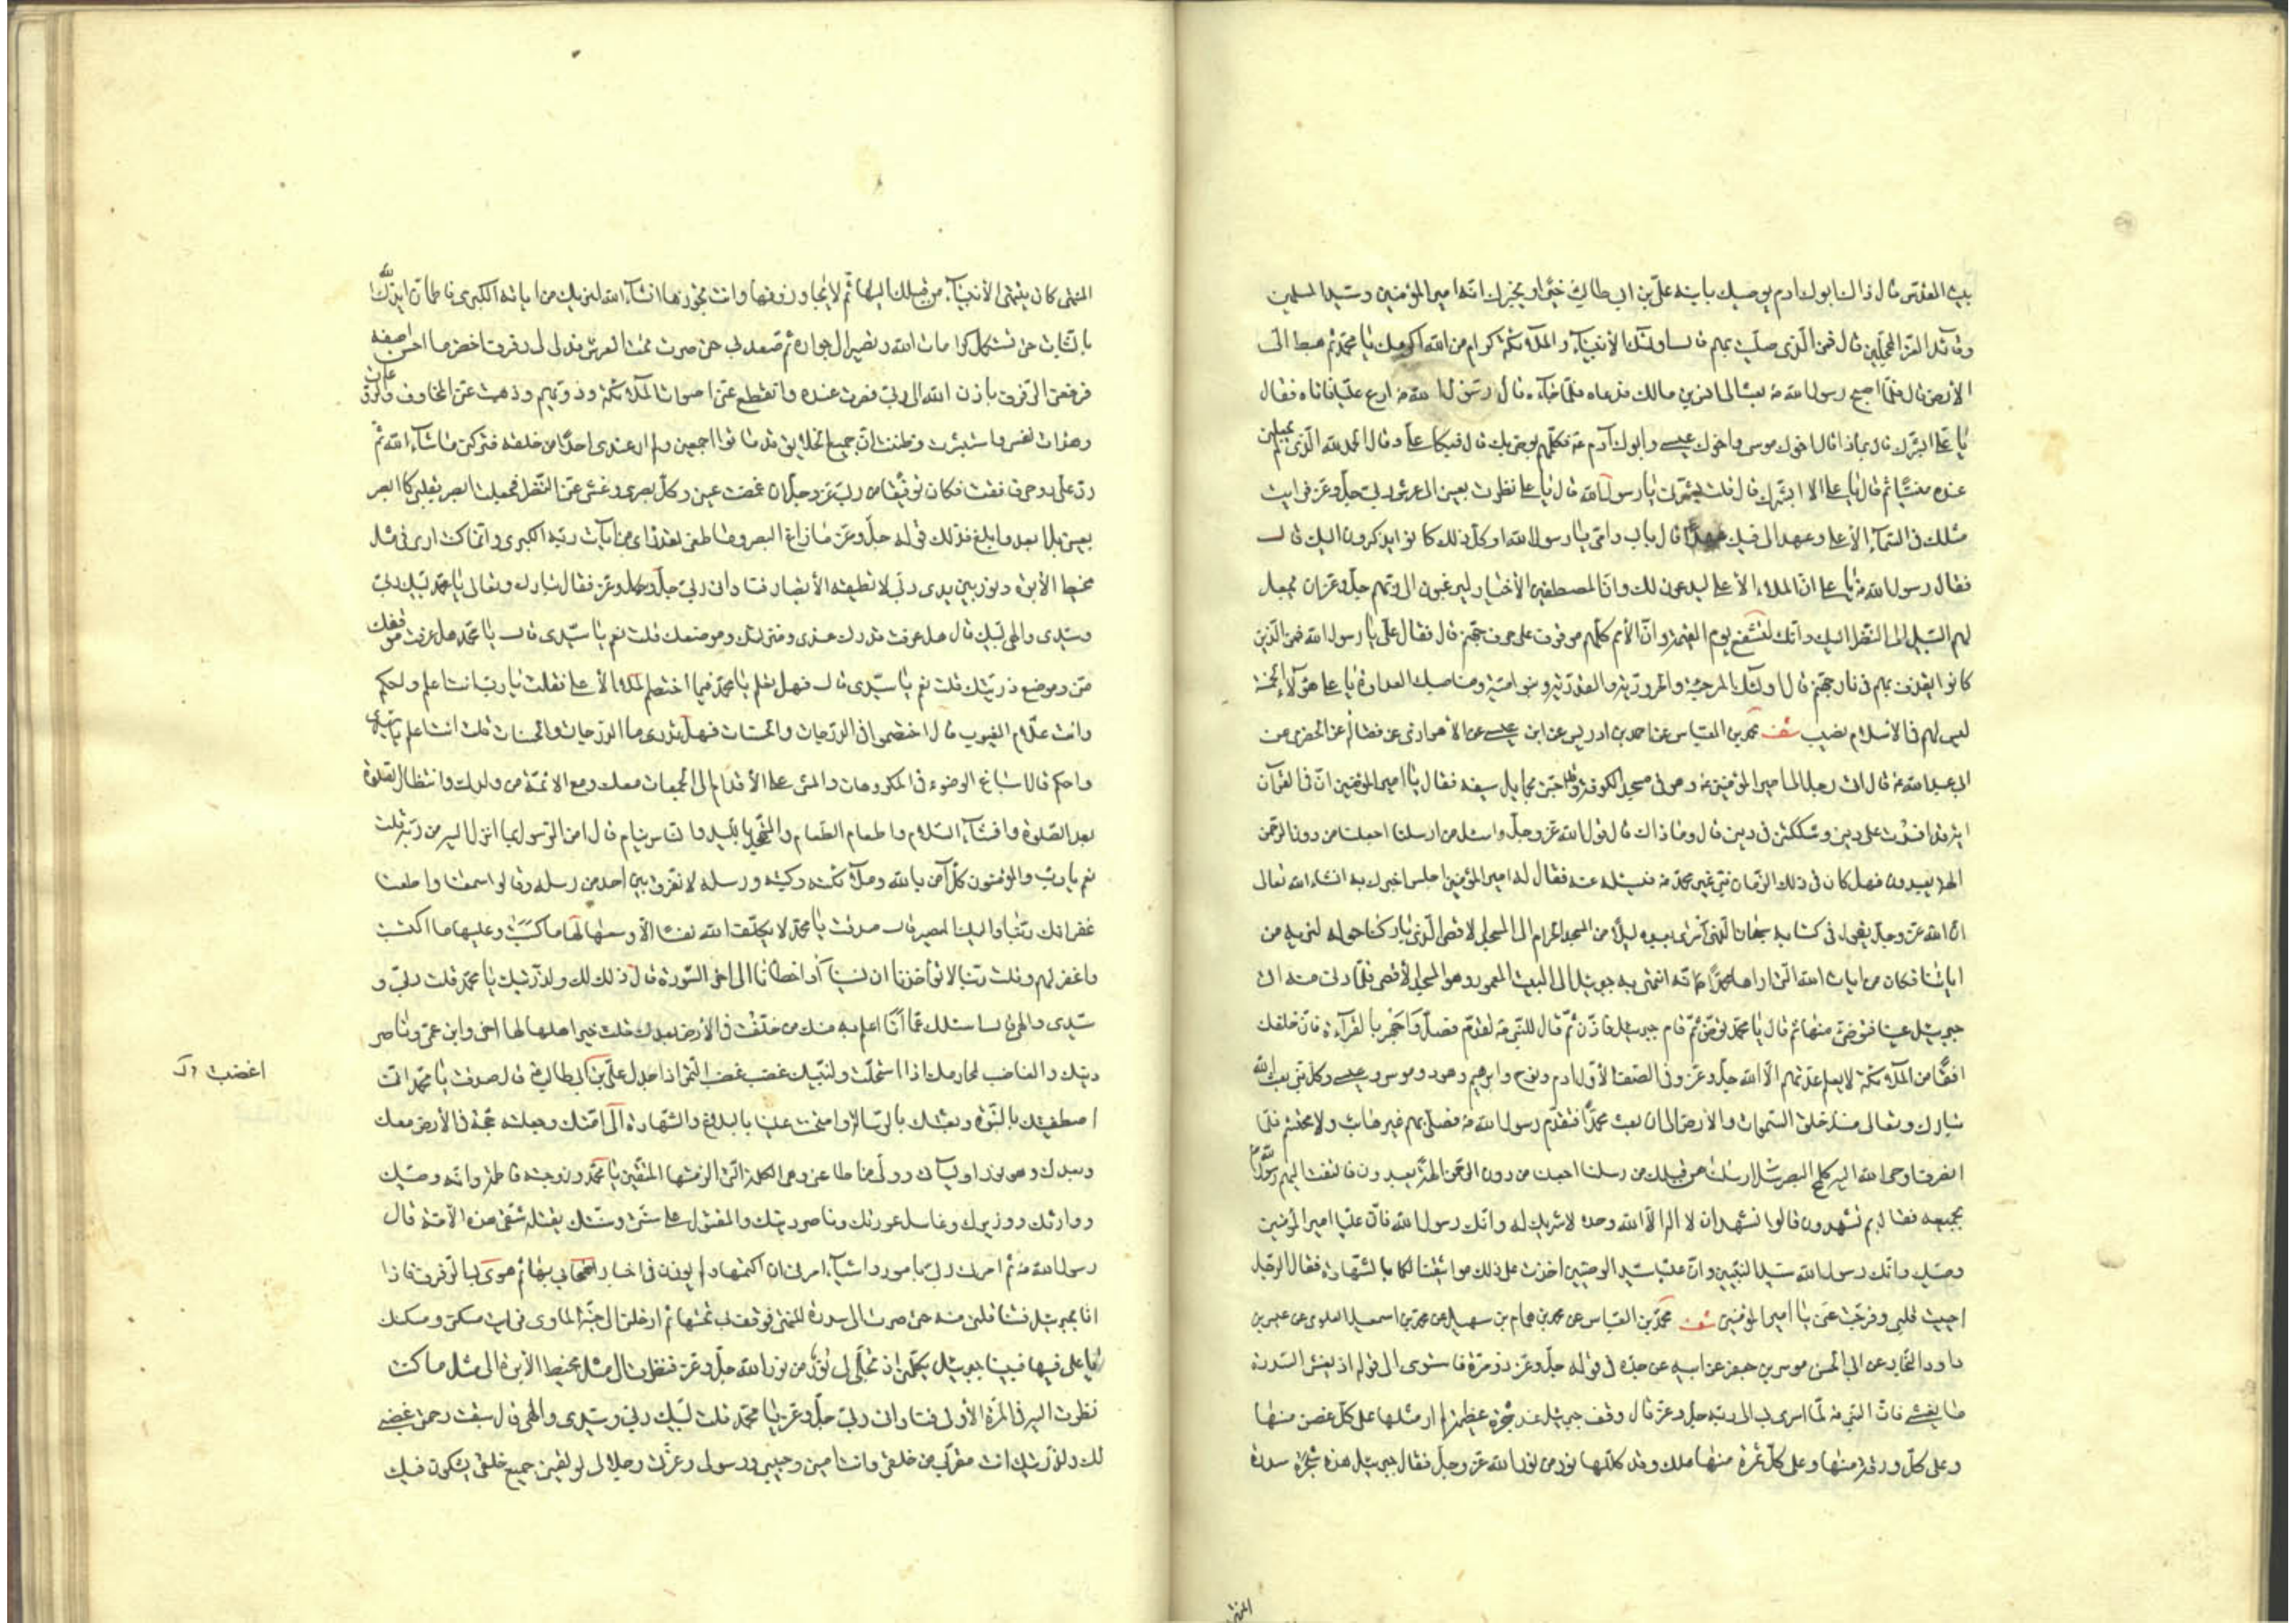 بيت المقدس قال ذاك ابوك ادم يوصيك بابنه علي بن ابي طالب خيرا ويخبرك انه امير المؤمنين وسيد المسلمين
وقائد الغر المحجلين قال فمن الذين صليت بهم قال اولئك الأنبياء والملائكة كرام من الله اكرمك يا محمد ثم هبط الى
الأرض قال فلما اصبح رسول الله ص بعث الى انس بن مالك فدعاه فلما جاءه قال رسول الله ص ادع عليا فاتاه فقال
يا علي ابشرك قال بماذا قال اخوك موسى واخوك عيسى وابوك آدم ع فكلهم يوصي بك قال فبكا علي وقال الحمد لله الذي لم يجعلني
عنده منسيا ثم قال يا علي الا ابشرك قال قلت بشرني يا رسول الله قال يا علي نظرت بعيني الى عرش ربي جل وعز فرايت
مثلك في السماء الأعلى وعهد الي فيك عهدا قال بابي وامي يا رسول الله او كل ذلك كانوا يذكرون اليك قال
فقال رسول الله ص يا علي ان الملاء الأعلى ليدعون لك وان المصطفين الأخيار ليرغبون الى ربهم جل وعز ان يجعل
لهم السبيل الى النظر اليك وانك لتشفع يوم القيمة وان الأمم كلهم موقوف على حرف جهنم قال فقال علي يا رسول الله فمن الذين
كانوا يقذف بهم في نار جهنم قال اولئك المرجئة والحرورية والقدرية وبنو امية ومناصبك العداوة يا علي هؤلاء الخمسة
ليس لهم في الأسلام نصيب شف محمد بن العباس عن احمد بن ادريس عن ابن عيسى عن الأهوازي عن فضالة عن الحضرمي عن
ابي عبد الله ع قال اتى رجل الى امير المؤمنين ع وهو في مسجد الكوفة وقد احتبى بحمايل سيفه فقال يا امير المؤمنين ان في القرآن
اية قد افسدت علي ديني وشككتني في ديني قال وما ذاك قال قول الله عز وجل واسئل من ارسلنا اجعلنا من دون الرحمن
الهة يعبدون فهل كان في ذلك الزمان نبي غير محمد ص فيسئله عنه فقال له امير المؤمنين اجلس اخبرك به انشاء الله تعالى
ان الله عز وجل يقول في كتابه سبحان الذي اسرى بعبده ليلا من المسجد الحرام الى المسجد الاقصى الذي باركنا حوله لنريه من
اياتنا فكان من ايات الله التي اراها محمدا انه انتهى به جبرئيل الى البيت المعمور وهو المسجد الأقصى فلما دنى منه اتى
جبرئيل عينا فتوضى منها ثم قال يا محمد توضى ثم قام جبرئيل فاذن ثم قال للنبي ص تقدم فصل واجهر بالقرآءة فان خلفك
افقا من الملائكة لا يعلم عدتهم الا الله جل وعز وفي الصف الأول ادم ونوح وابرهيم وهود وموسى وعيسى وكل نبي بعث الله
تبارك وتعالى منذ خلق السموات والأرض الى ان بعث محمدا فتقدم رسول الله ص فصلى بهم غير هائب ولا محتشم فلما
انصرف اوحى الله اليه كلمح البصر سل من ارسلنا من قبلك من رسلنا اجعلنا من دون الرحمن الهة يعبدون فالتفت اليهم رسول الله ص
بجميعه فقال بم تشهدون قالوا نشهد ان لا اله الا الله وحده لا شريك له وانك رسول الله فان عليا امير المؤمنين
وصيك وانك رسول الله سيد النبيين وان عليا سيد الوصيين اخذت على ذلك مواثيقنا لكما بالشهادة فقال الرجل
احييت قلبي وفرجت عني يا امير المؤمنين شف محمد بن العباس عن محمد بن همام بن سهيل عن محمد بن اسمعيل العلوي عن عيسى بن
داود النجار عن ابي الحسن موسى بن جعفر عن ابيه عن جده في قوله جل وعز ذو مرة فاستوى الى قوله اذ يغشى السدرة
ما يغشى فان النبي ص لما اسري به الى ربه جل وعز قال وقف جبرئيل عند شجرة عظيمة لم ار مثلها على كل غصن منها
وعلى كل ورقة منها وعلى كل ثمرة منها ملك وقد كللها نور من نور الله عز وجل فقال جبرئيل هذه شجرة سدرة
المنتهى
المنتهى كان ينتهي الأنبياء من قبلك اليها ثم لا يتجاوزونها وانت تجوزها انشاء الله ليريك من اياته الكبرى فاطمان ايدك الله
بالثبات حتى تستكمل كرامات الله وتصير الى جواره ثم صعد بي حتى صرت تحت العرش فدلي لي رفرف اخضر ما احسن اصفه
فرفعني الرفرف باذن الله الى ربي فصرت عنده وانقطع عني اصوات الملائكة ودويهم وذهبت عني المخاوف والروعات
وهدات نفسي واستبشرت وظننت ان جميع الخلايق قد ماتوا اجمعين ولم ار عندي احدا من خلقه فتركني ما شاء الله ثم
رد علي روحي فافقت فكان توفيقا من ربي عز وجل ان غمضت عيني وكل بصري وغشى عني النظر فجعلت ابصر بقلبي كما ابصر
بعيني بل ابعد وابلغ فذلك قوله جل وعز ما زاغ البصر وما طغى لقد راى من آيات ربه الكبرى وانما كنت ارى في مثل
مخيط الأبرة ونور بين يدي ربي لا تطيقه الأبصار فناداني ربي جل وعز فقال تبارك وتعالى يا محمد لبيك ربي
وسيدي والهي لبيك قال هل عرفت قدرك عندي ومنزلتك وموضعك قلت نعم يا سيدي قال يا محمد هل عرفت موقعك
مني وموضع ذريتك قلت نعم يا سيدي قال فهل تعلم يا محمد فيما اختصم الملاء الأعلى فقلت يا رب انت اعلم واحكم
وانت علام الغيوب قال اختصموا في الدرجات والحسنات فهل تدري ما الدرجات والحسنات قلت انت اعلم يا سيدي
واحكم قال اسباغ الوضوء في المكروهات والمشي على الأقدام الى الجمعات معك ومع الائمة من ولدك وانتظار الصلوة
بعد الصلوة وافشاء السلام واطعام الطعام والتهجد بالليل والناس نيام قال امن الرسول بما انزل اليه من ربه قلت
نعم يا رب والمؤمنون كل آمن بالله وملائكته وكتبه ورسله لا نفرق بين احد من رسله وقالوا سمعنا واطعنا
غفرانك ربنا واليك المصير قال صدقت يا محمد لا يكلف الله نفسا الا وسعها لها ما كسبت وعليها ما اكتسبت
واغفر لهم وقلت ربنا لا تؤاخذنا ان نسينا او اخطانا الى اخر السورة قال ذلك لك ولذريتك يا محمد قلت ربي و
سيدي والهي قال اسئلك عما انا اعلم به منك من خلفت في الأرض بعدك قلت خير اهلها لها اخي وابن عمي وناصر
دينك والغاضب لمحارمك اذا استحلت ولنبيك غضب غضب النمر اذا جدل علي بن ابي طالب قال صدقت يا محمد اني
اصطفيتك بالنبوة وبعثتك بالرسالة وامتحنت عليا بالبلاغ والشهادة الى امتك وجعلته حجة في الأرض معك
وبعدك وهو نور اوليائي وولي من اطاعني وهو الكلمة التي الزمتها المتقين يا محمد وزوجته فاطمة وانه وصيك
ووارثك ووزيرك وغاسل عورتك وناصر دينك والمقتول على سنتي وسنتك يقتله شقي هذه الأمة قال
رسول الله ص ثم امرني ربي بامور واشياء امرني ان اكتمها ولم يؤذن في اخبار اصحابي بها ثم هوى بي الرفرف فاذا
انا بجبرئيل فتناولني منه حتى صرت الى سدرة المنتهى فوقف بي تحتها ثم ادخلني الى جنة الماوى فرايت مسكني ومسكنك
يا علي فيها فبينا جبرئيل يكلمني اذ تجلى لي نور من نور الله جل وعز فنظرت الى مثل مخيط الأبرة الى مثل ما كنت
نظرت اليه في المرة الأولى فناداني ربي جل وعز يا محمد قلت لبيك ربي وسيدي والهي قال سبقت رحمتي غضبي
لك ولذريتك انت مقربي من خلقي وانت اميني وحبيبي ورسولي وعزتي وجلالي لو لقيني جميع خلقي يشكون فيك
اغضب